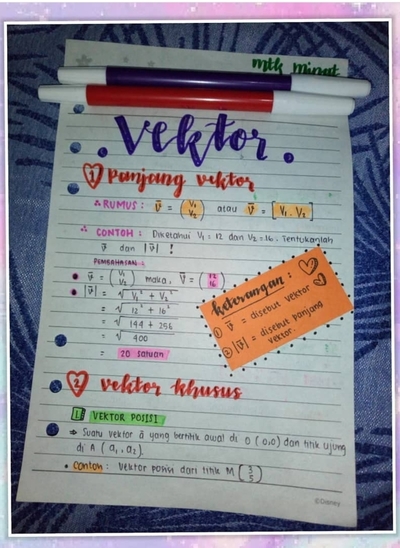 mtk minat
Vektor
1 Panjang vektor
∴ RUMUS : v⃗ = (V₁ V₂) atau v⃗ = [V₁ . V₂]
∴ CONTOH : Diketahui V₁ = 12 dan V₂ = 16. Tentukanlah
v⃗ dan |v⃗| !
PEMBAHASAN :
• v⃗ = (V₁ V₂) maka, v⃗ = (12 16)
• |v⃗| = √V₁² + V₂²
= √12² + 16²
= √144 + 256
= √400
= 20 satuan
keterangan :
① v⃗ = disebut vektor
② |v⃗| = disebut panjang
vektor.
2 vektor khusus
1 VEKTOR POSISI
⇒ Suatu vektor a⃗ yang bertitik awal di O (0,0) dan titik ujung
di A (a₁, a₂).
• Contoh : Vektor posisi dari titik M
©Disney